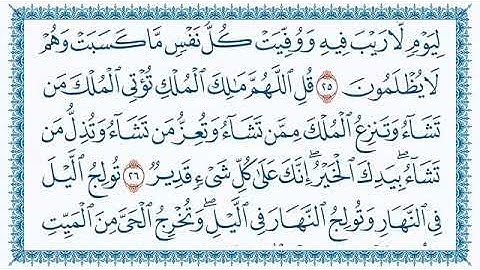 لِيَوْمٍ لَّا رَيْبَ فِيهِ وَوُفِّيَتْ كُلُّ نَفْسٍ مَّا كَسَبَتْ وَهُمْ
لَا يُظْلَمُونَ ٢٥ قُلِ اللَّهُمَّ مَالِكَ الْمُلْكِ تُؤْتِي الْمُلْكَ مَن
تَشَاءُ وَتَنزِعُ الْمُلْكَ مِمَّن تَشَاءُ وَتُعِزُّ مَن تَشَاءُ وَتُذِلُّ مَن
تَشَاءُ ۖ بِيَدِكَ الْخَيْرُ ۖ إِنَّكَ عَلَىٰ كُلِّ شَيْءٍ قَدِيرٌ ٢٦ تُولِجُ اللَّيْلَ
فِي النَّهَارِ وَتُولِجُ النَّهَارَ فِي اللَّيْلِ ۖ وَتُخْرِجُ الْحَيَّ مِنَ الْمَيِّتِ